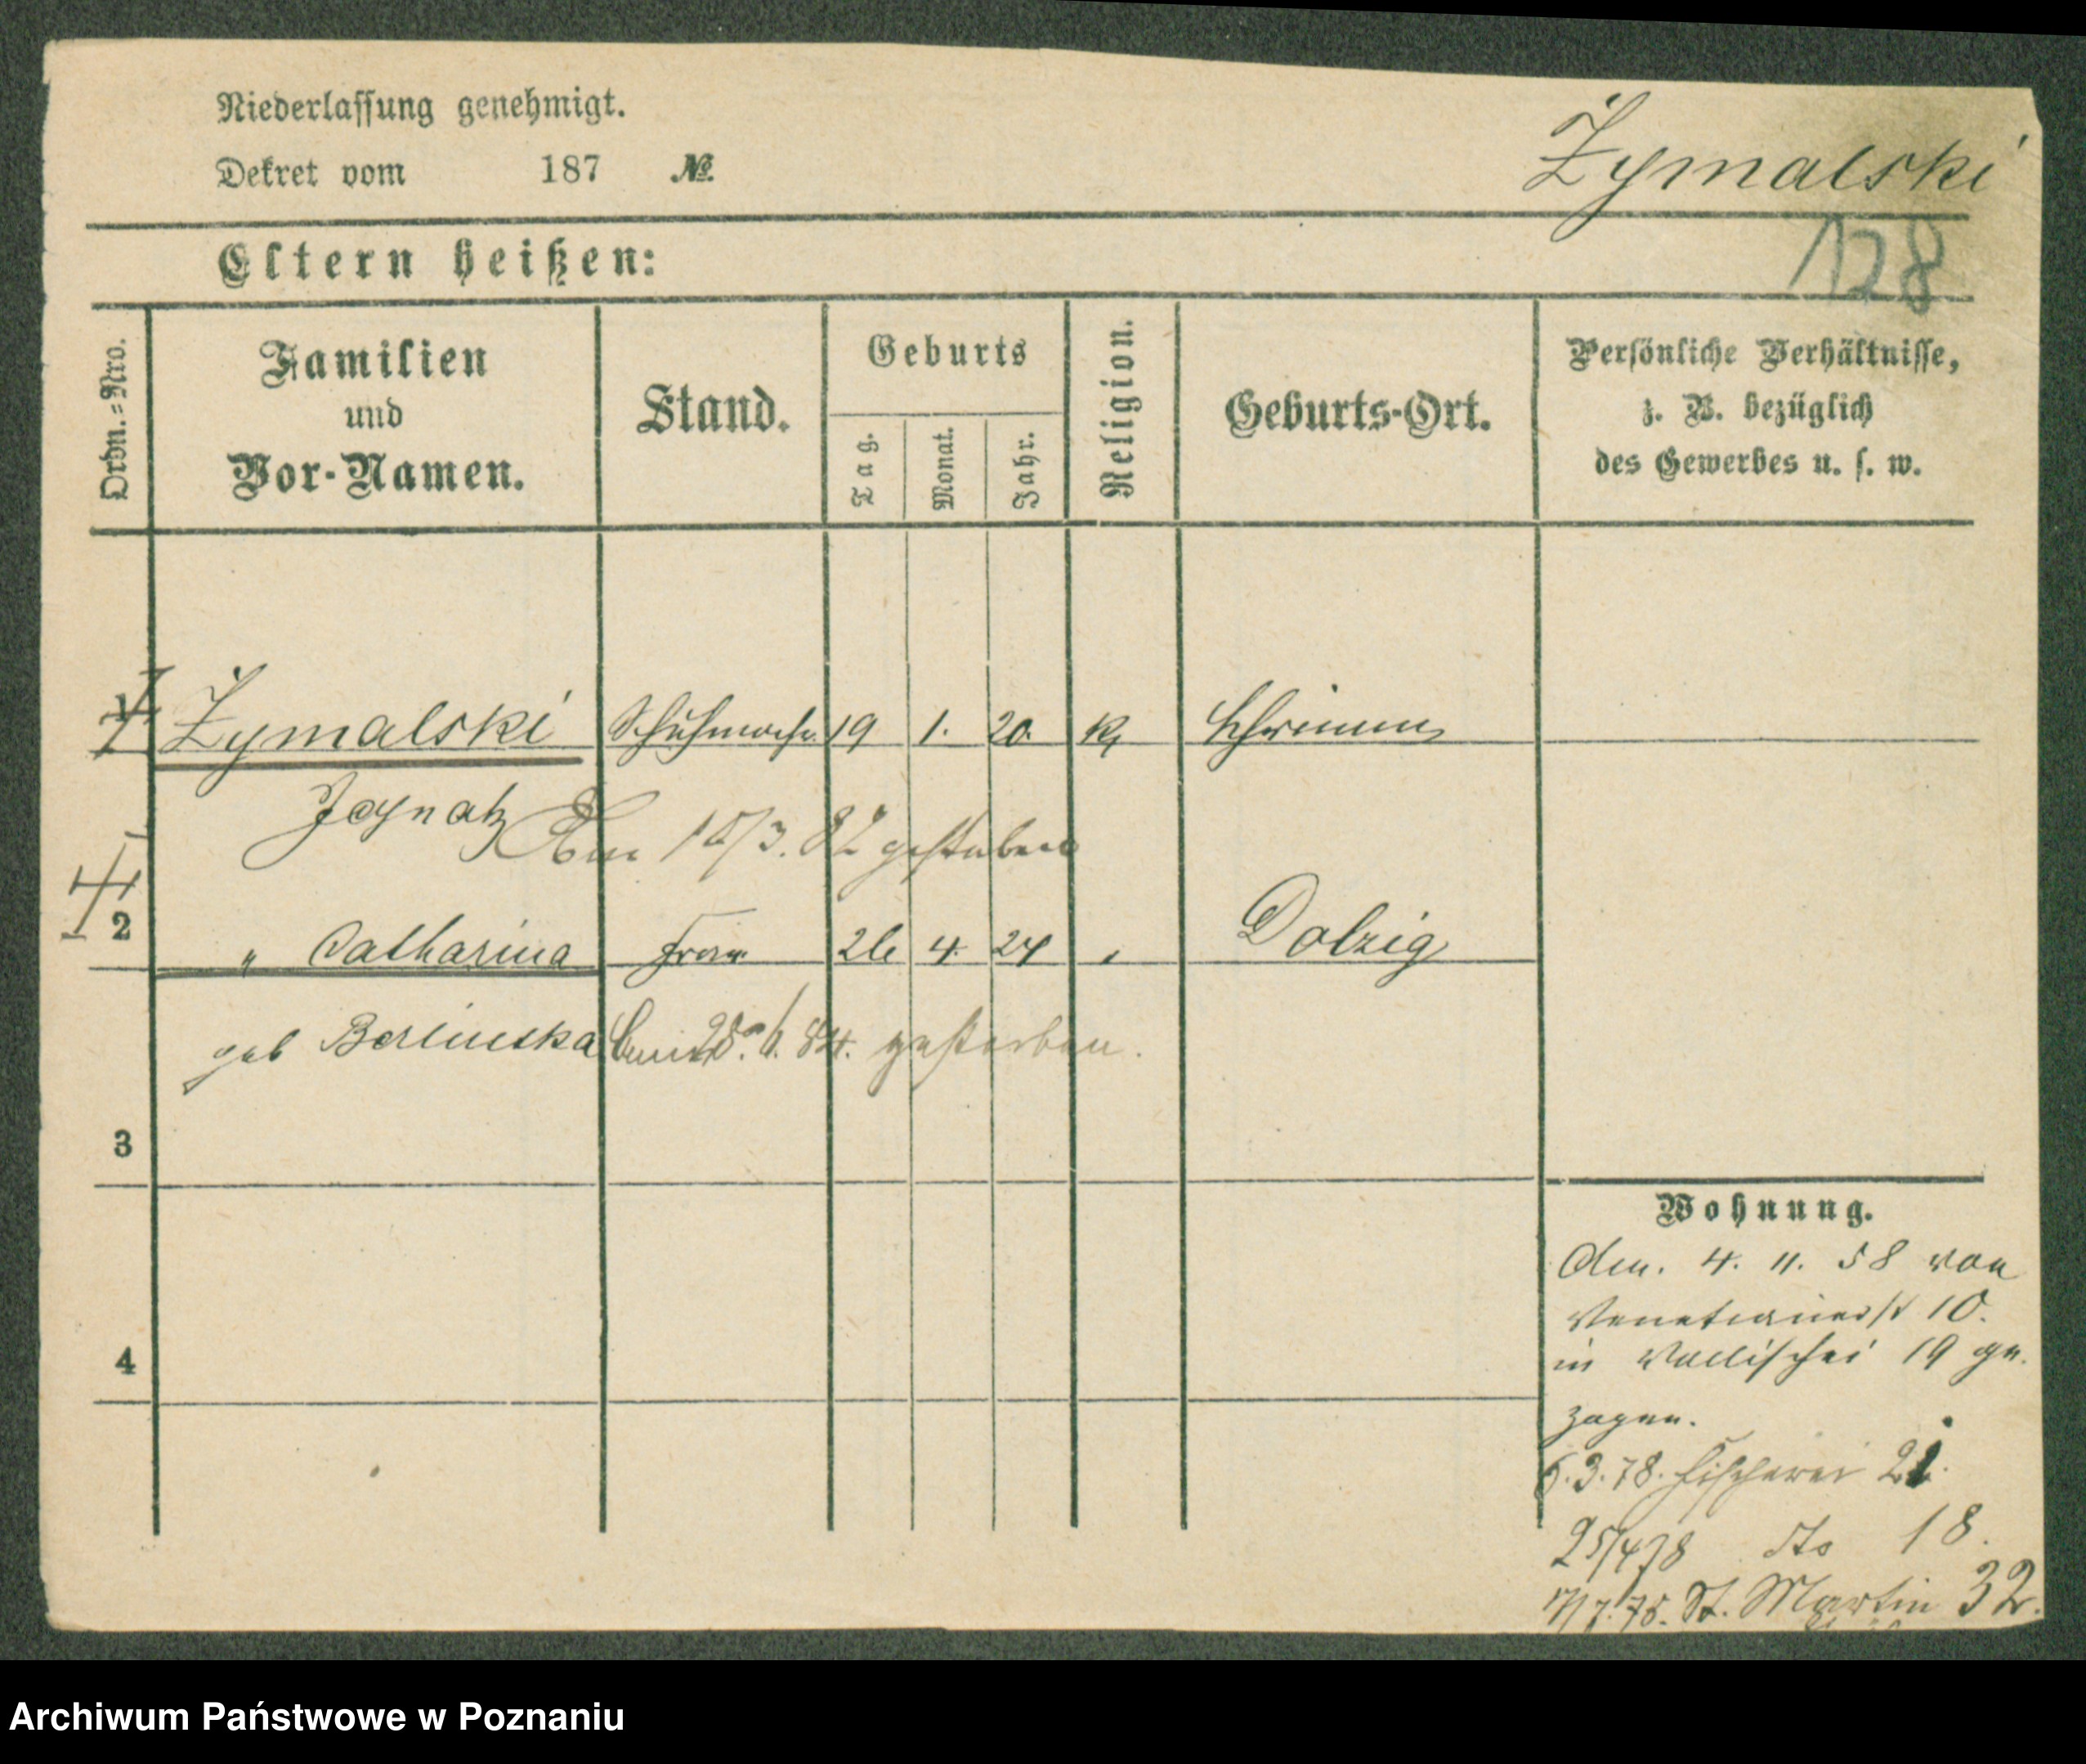 Niederlassung genehmigt.
Dekret vom 187 №
Żymalski
128
Eltern heißen:
Ordn.=Nro.
Familien
und
Vor-Namen.
Stand.
Geburts
Tag.
Monat.
Jahr.
Religion.
Geburts-Ort.
Persönliche Verhältnisse,
z. B. bezüglich
des Gewerbes u. s. w.
Żymalski Schuhmacher 19 1. 20. K Schrimm
Ignatz
Am 15/3. 82 gestorben
2 " Catharina Frau 26 4. 24 " Dolzig
geb Berlinska 6. 84. gestorben.
3
4
Wohnung.
Am. 4. 11. 58 von
Venetianerst 10.
in Wallischei 19 ge-
zogen.
6.3.78. Fischerei
25/4 78 dto 18.
17/7.78. St. Martin 32.
Archiwum Państwowe w Poznaniu